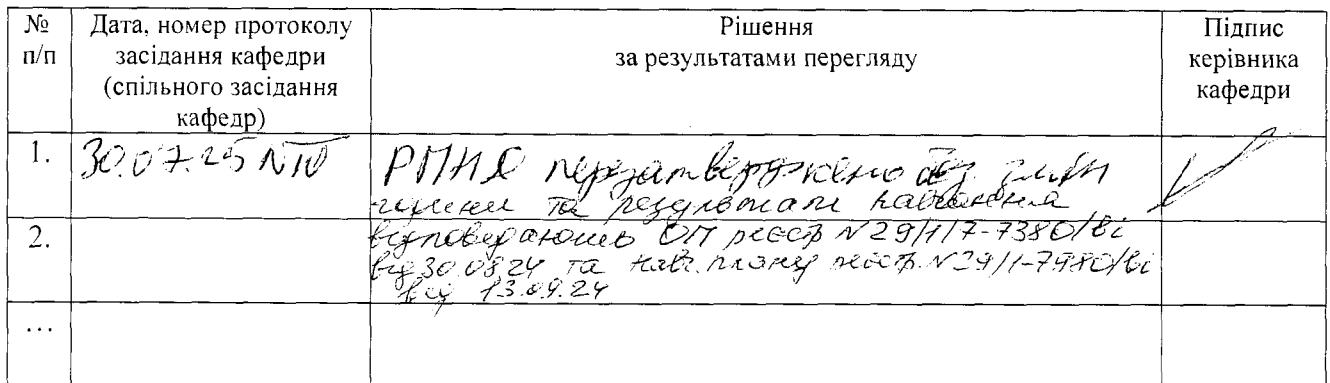 № п/п
Дата, номер протоколу засідання кафедри (спільного засідання кафедр)
Рішення за результатами перегляду
Підпис керівника кафедри
1.
30.07.25 N
перезатверджено без змін
та результати навчання
2.
відповідають ОП реєстр N29/1/7-7380/ві
від 30.08.24 та навч. плану реєстр. N29/1-7980/ві
від 13.09.24
...